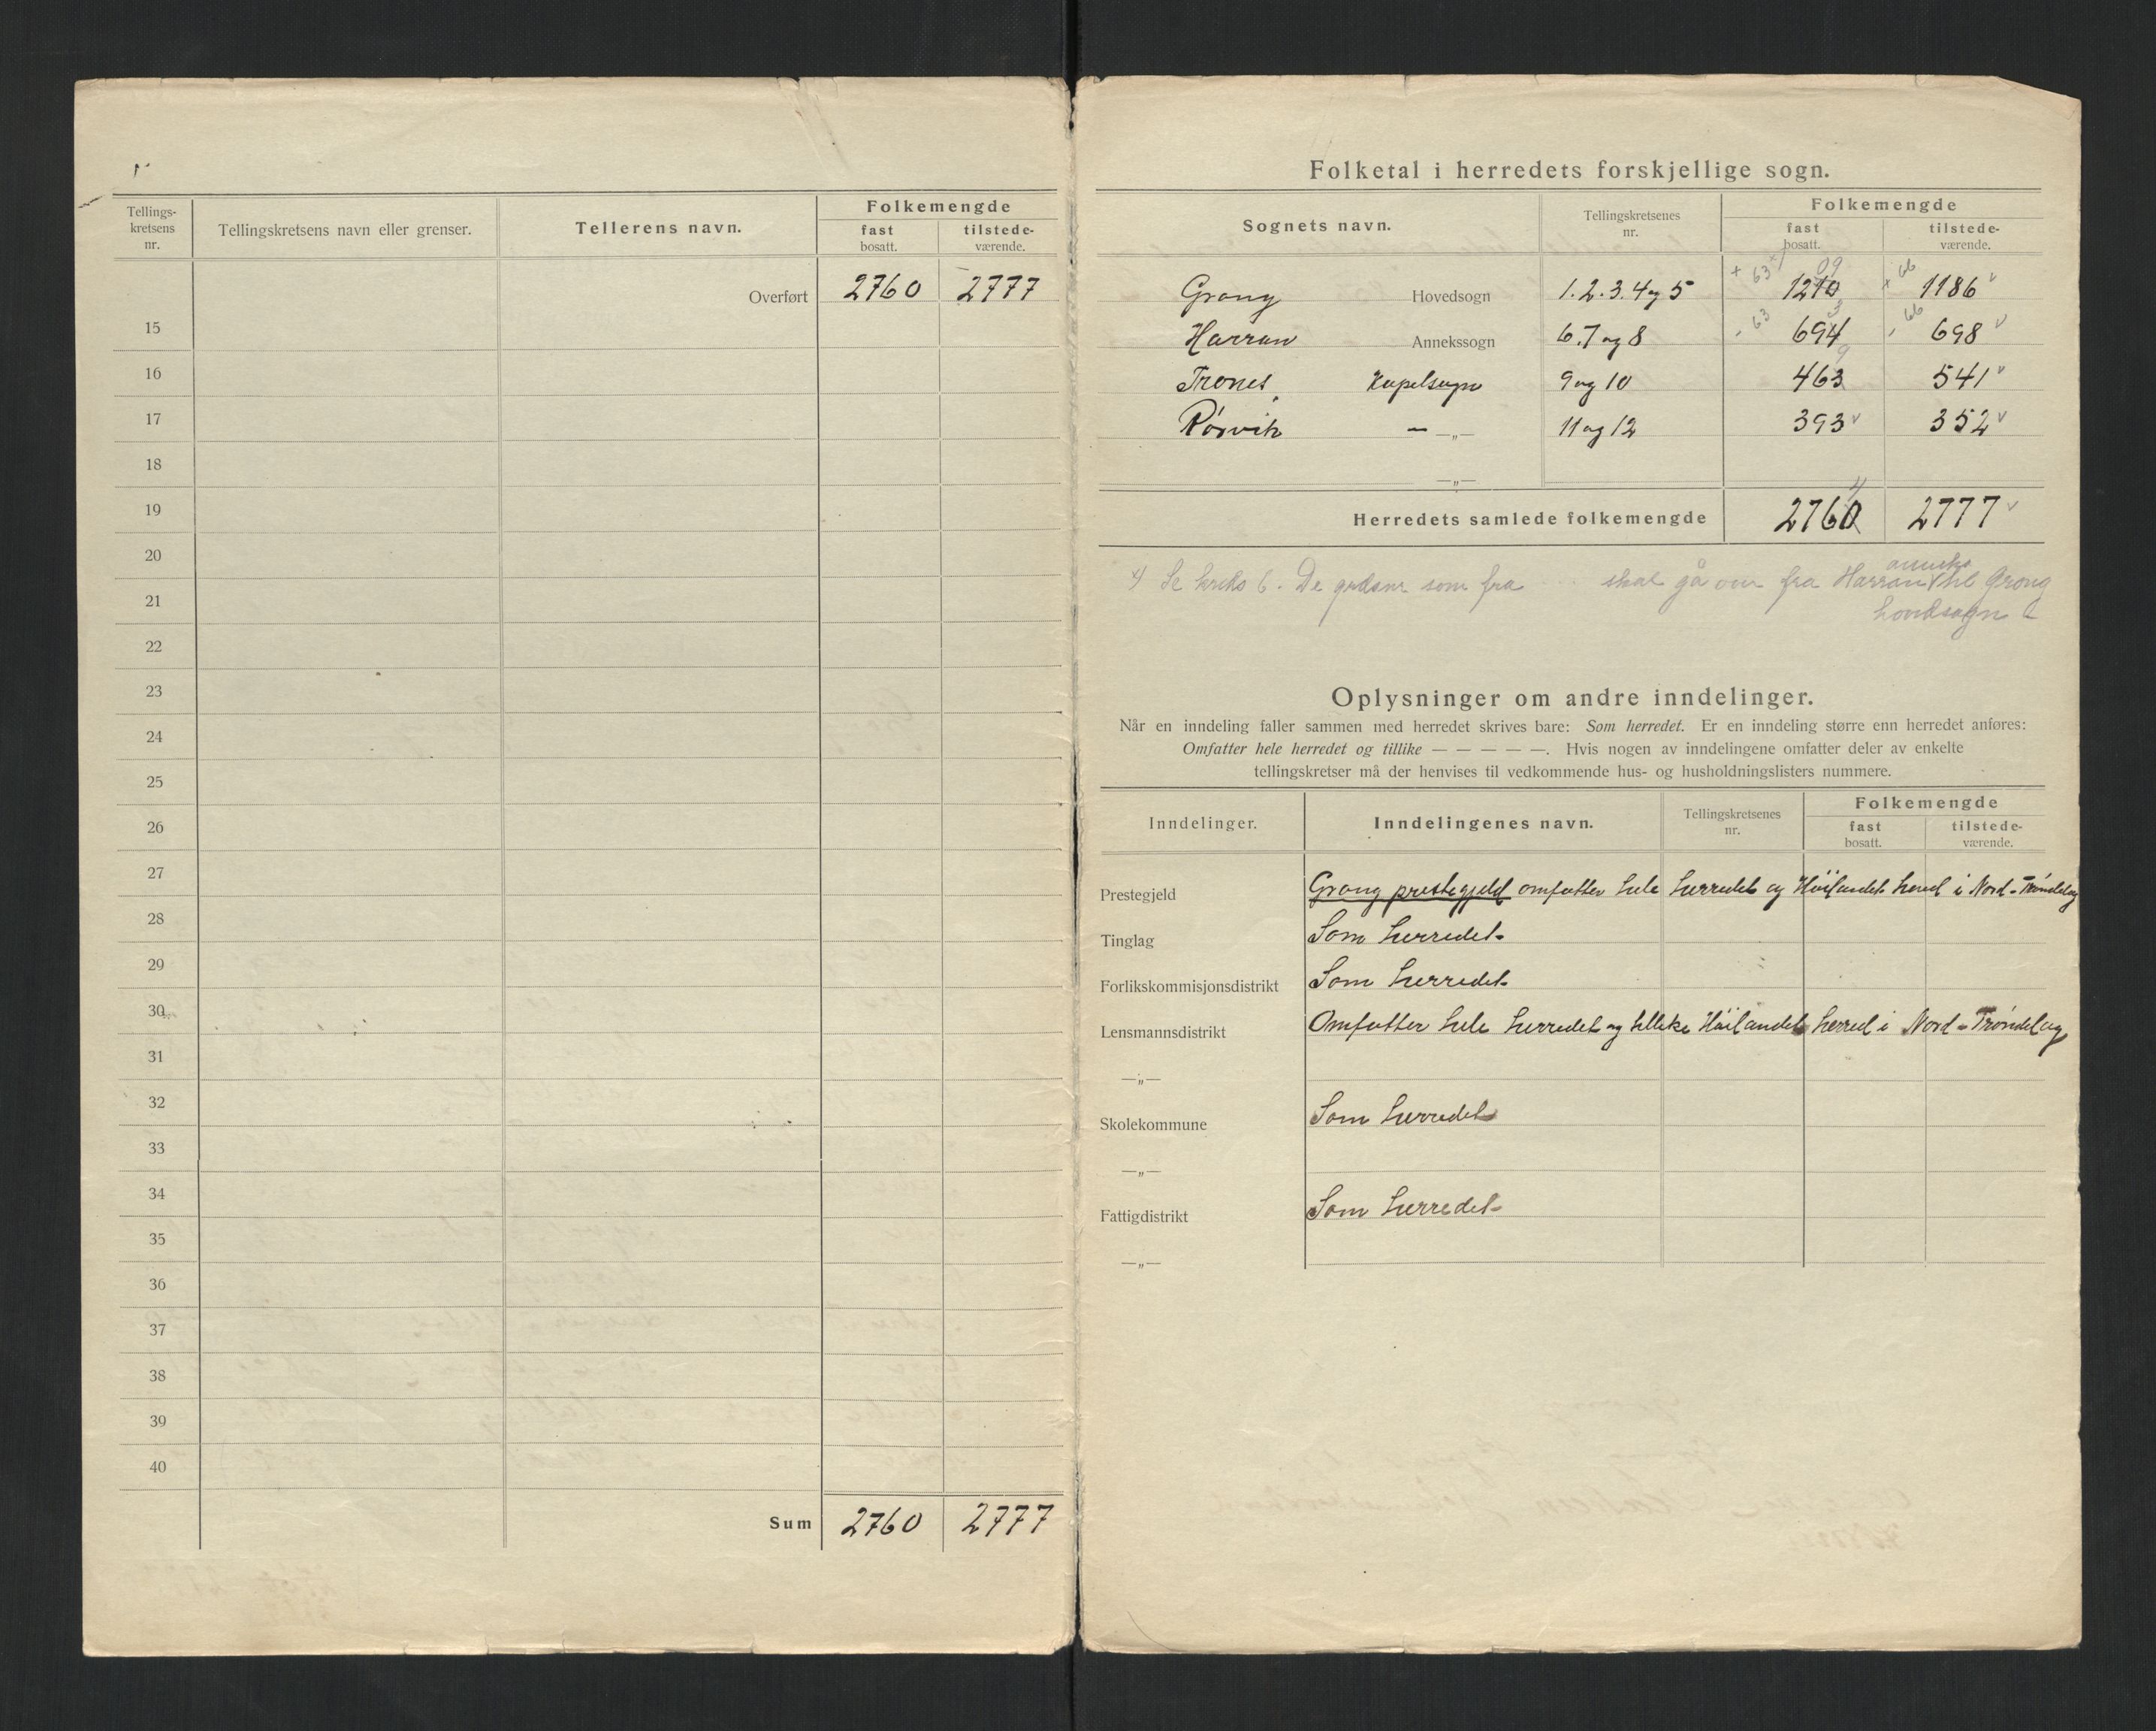 Tellings-
kretsens
nr.
Tellingskretsens navn eller grenser.
Tellerens navn.
Folkemengde
fast
bosatt.
tilstede-
værende.
Overført 2760 2777
15
16
17
18
19
20
21
22
23
24
25
26
27
28
29
30
31
32
33
34
35
36
37
38
39
40
Sum 2760 2777
Folketal i herredets forskjellige sogn.
Sognets navn.
Tellingskretsenes
nr.
Folkemengde
fast
bosatt.
tilstede-
værende.
+ 63 09 + 66
Grong Hovedsogn 1.2.3.4 og 5 1210 1186 ✓
- 63 3 - 66
Harran Annekssogn 6.7 og 8 694 698 ✓
9
Trones, Kapelsogn 9 og 10 463 541 ✓
Rørvik — —„— 11 og 12 393 ✓ 352 ✓
—„—
4
Herredets samlede folkemengde 2760 2777 ✓
anneks
Se kreds 6. De som fra skal gå over fra Harran til Grong
hovedsogn
Oplysninger om andre inndelinger.
Når en inndeling faller sammen med herredet skrives bare: Som herredet. Er en inndeling større enn herredet anføres:
Omfatter hele herredet og tillike — — — — —. Hvis nogen av inndelingene omfatter deler av enkelte
tellingskretser må der henvises til vedkommende hus- og husholdningslisters nummere.
Inndelinger.
Inndelingenes navn.
Tellingskretsenes
nr.
Folkemengde
fast
bosatt.
tilstede-
værende.
Prestegjeld Grong prestegjeld omfatter hele herredet og Høilandet herred i Nord-Trøndelag
Tinglag Som herredet
Forlikskommisjonsdistrikt Som herredet
Lensmannsdistrikt Omfatter hele herredet og tillike Høilandet herred i Nord-Trøndelag
—„—
Skolekommune Som herredet
—„—
Fattigdistrikt Som herredet
—„—